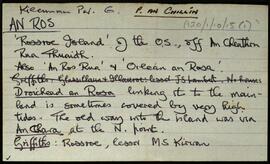 Keeraun Par. G. P. AN CHILLÍN
AN ROS (130/1/0/5(1)
'Rossroe Island' of the O.S., off An Cheathrú
Rua Thuaidh.
Also 'An Ros Rua' & 'Oileán an Rosa'.
Griffith: lessor No houses
Droichead an Rosa linking it to the main-
land is sometimes covered by very high
tides. The old way into the island was via
An Chora, at the N. point.
Griffiths: Rossroe, lessor MS Kirwan